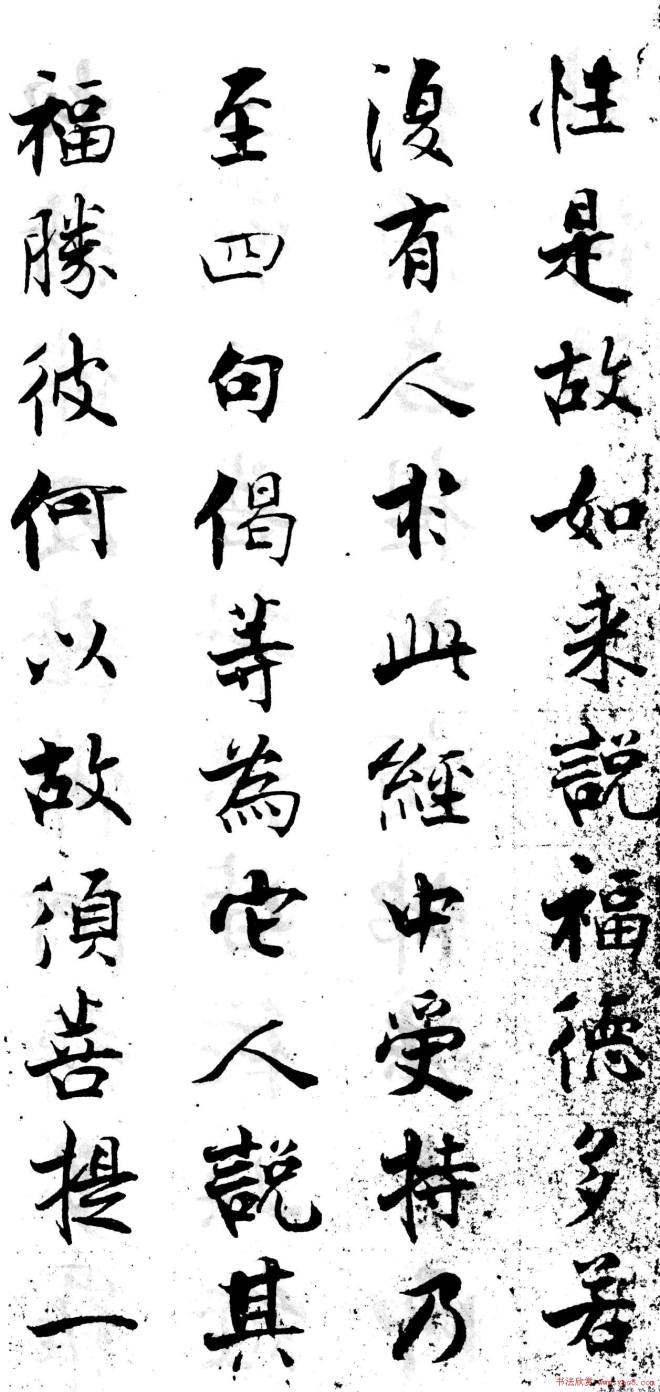 性是故如来說福德多若
復有人於此經中受持乃
至四句偈等為它人說其
福勝彼何以故須菩提一
书法欣赏 www.yac8.com